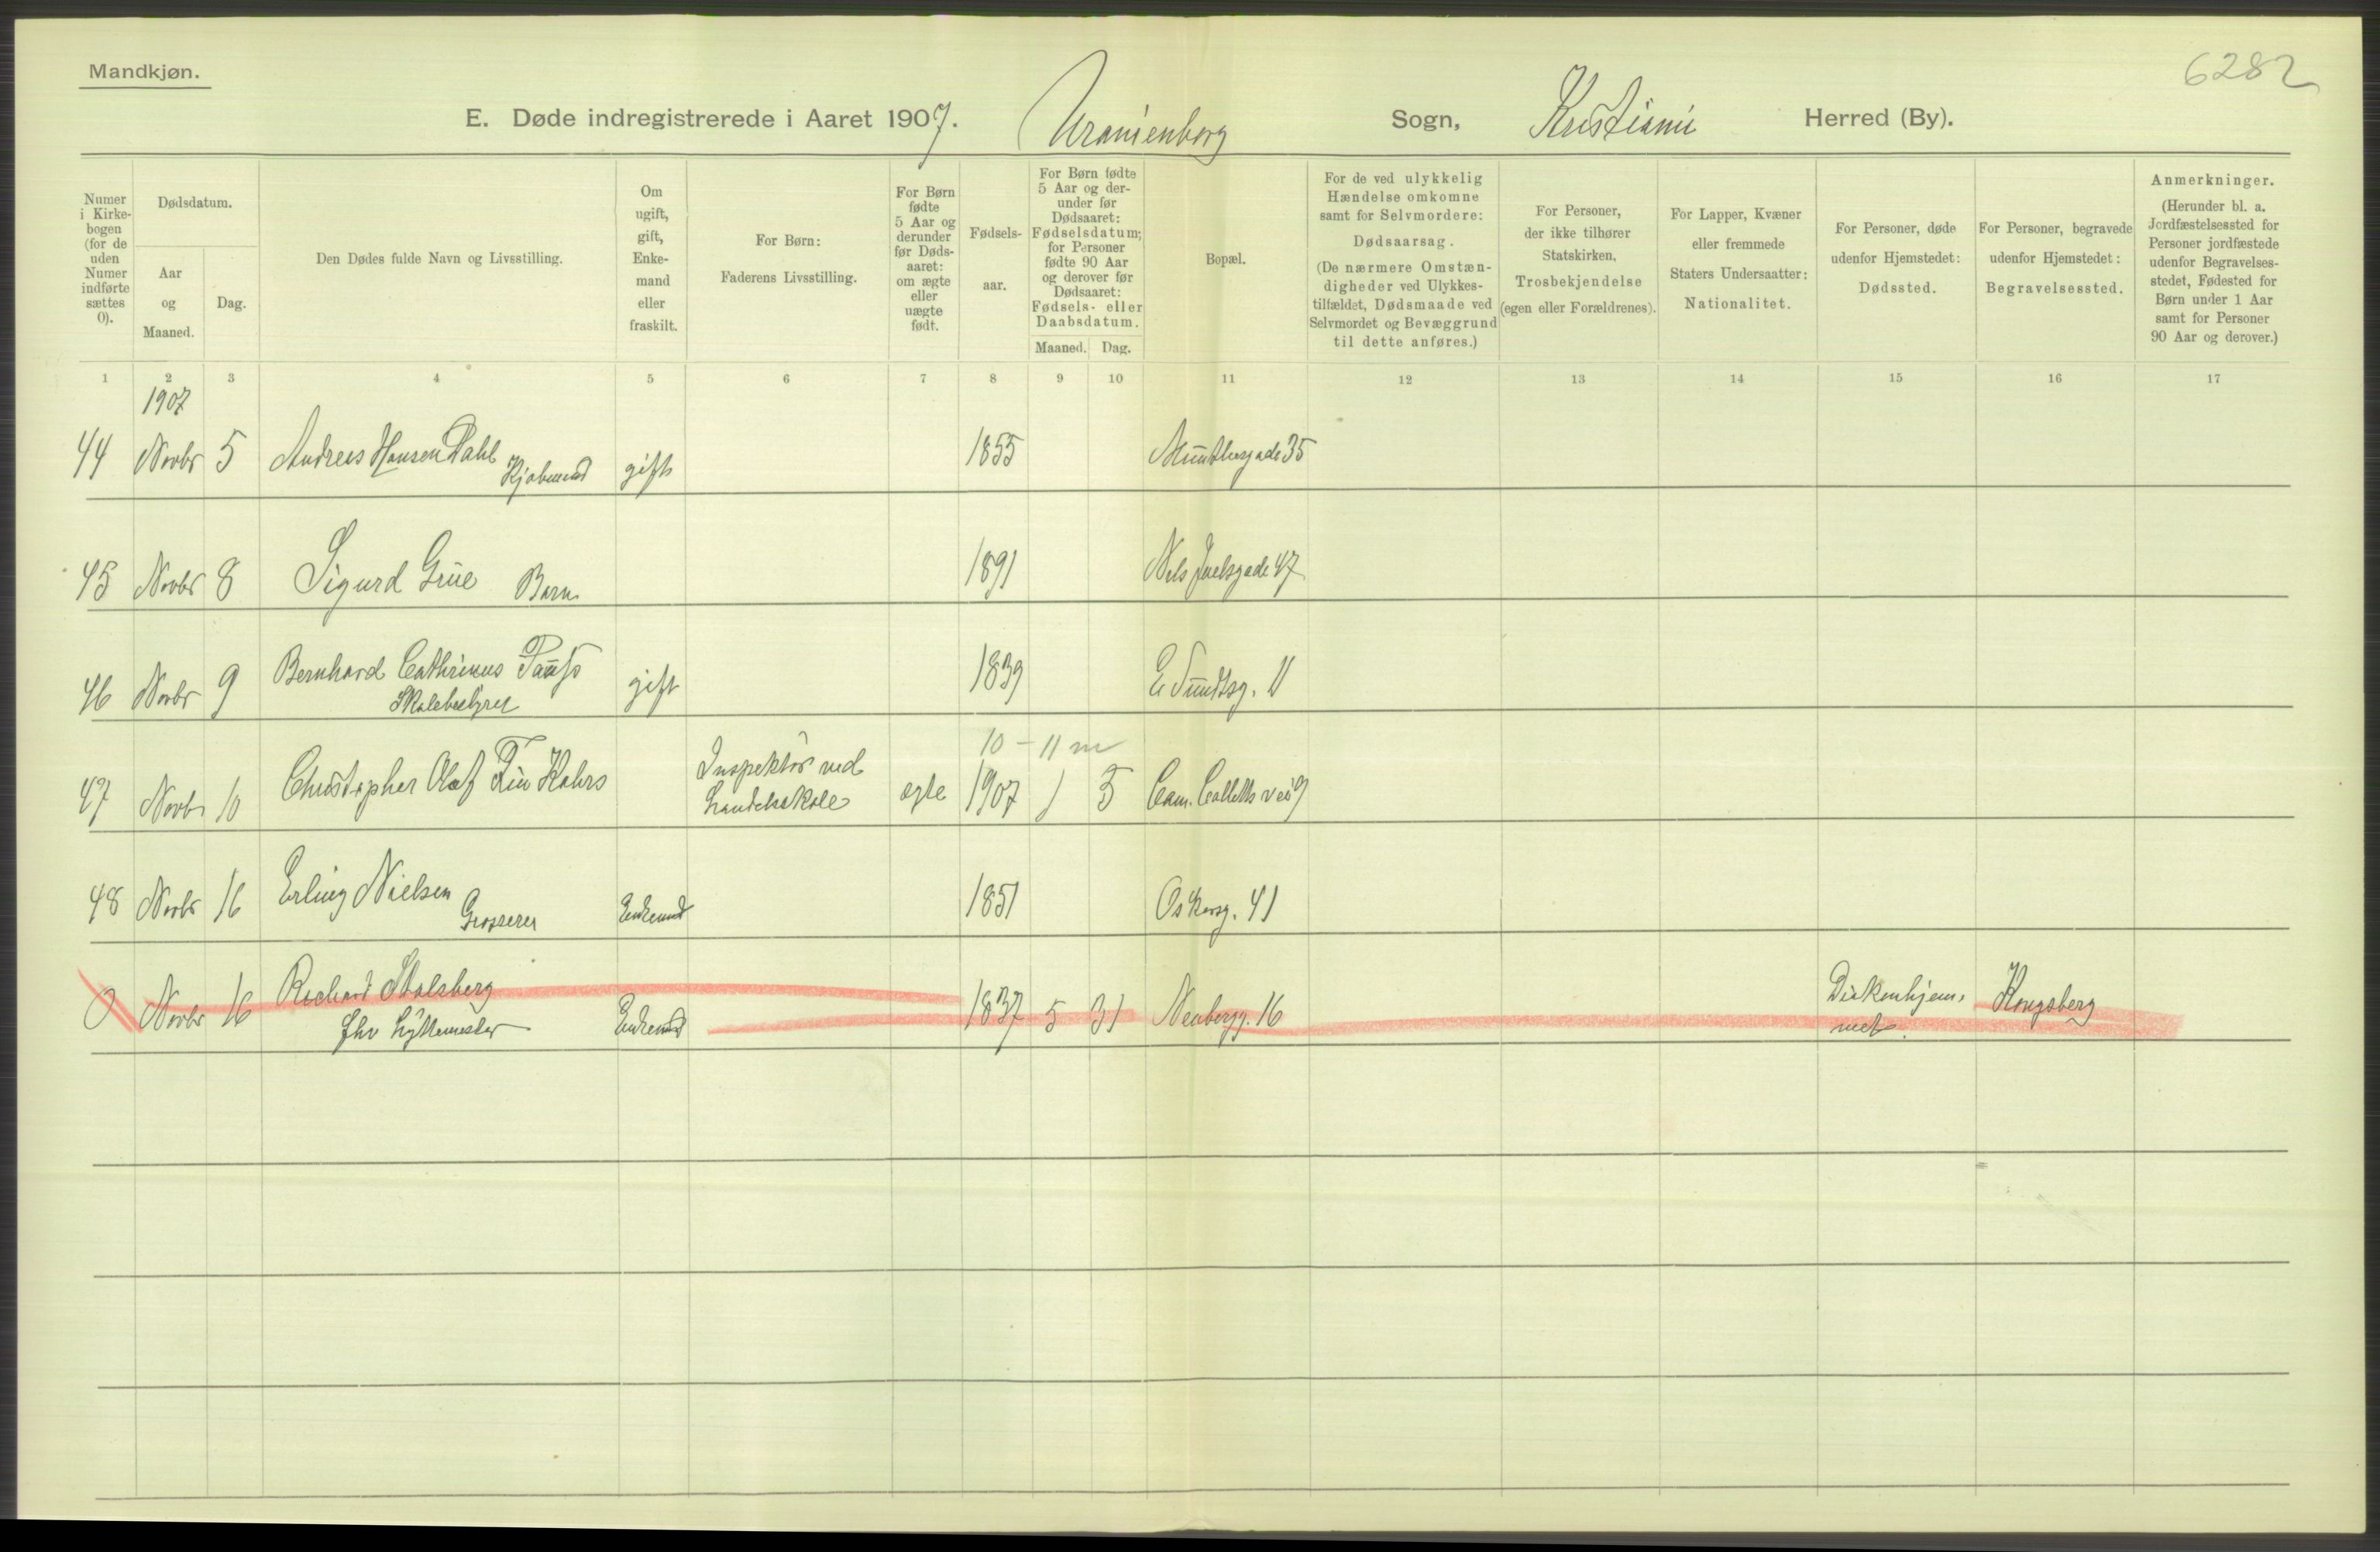 Mandkjøn.
6282
E. Døde indregistrerede i Aaret 1907. Uranienborg Sogn, Kristiania Herred (By).
Numer i Kirkebogen (for de uden Numer indførte sættes 0).
Dødsdatum.
Aar og Maaned.
Dag.
Den Dødes fulde Navn og Livsstilling.
Om ugift, gift, Enkemand eller fraskilt.
For Børn: Faderens Livsstilling.
For Børn fødte 5 Aar og derunder før Dødsaaret: om ægte eller uægte født.
Fødselsaar.
For Børn fødte 5 Aar og derunder før Dødsaaret: Fødselsdatum; for Personer fødte 90 Aar og derover før Dødsaaret: Fødsels- eller Daabsdatum.
Maaned. Dag.
Bopæl.
For de ved ulykkelig Hændelse omkomne samt for Selvmordere: Dødsaarsag. (De nærmere Omstændigheder ved Ulykkestilfældet, Dødsmaade ved Selvmordet og Bevæggrund til dette anføres.)
For Personer, der ikke tilhører Statskirken, Trosbekjendelse (egen eller Forældrenes).
For Lapper, Kvæner eller fremmede Staters Undersaatter: Nationalitet.
For Personer, døde udenfor Hjemstedet: Dødssted.
For Personer, begravede udenfor Hjemstedet: Begravelsessted.
Anmerkninger. (Herunder bl. a. Jordfæstelsessted for Personer jordfæstede udenfor Begravelsesstedet, Fødested for Børn under 1 Aar samt for Personer 90 Aar og derover.)
1 2 3 4 5 6 7 8 9 10 11 12 13 14 15 16 17
1907
44 Novbr 5 Andreas Hansen Dahl Kjøbmand gift 1855 Munthesgade 35
45 Novbr 8 Sigurd Grue Barn 1891 Nils Juelsgade 47
46 Novbr 9 Bernhard Cathrinus Pauss Skolebestyrer gift 1839 E Sundtsg. 11
10 - 11 m
47 Novbr 10 Christopher Olaf Fin Kahrs Inspektør ved Handelsskole ægte 1907 1 5 Cam. Colletts vei 9
48 Novbr 16 Erling Nielsen Grosserer Enkemd 1851 Oskarsg. 41
0 Novbr 16 Richard Stalsberg fhv Hyttemester Enkemd 1837 5 31 Neubergg. 16 Diakonhjemmet Kongsberg